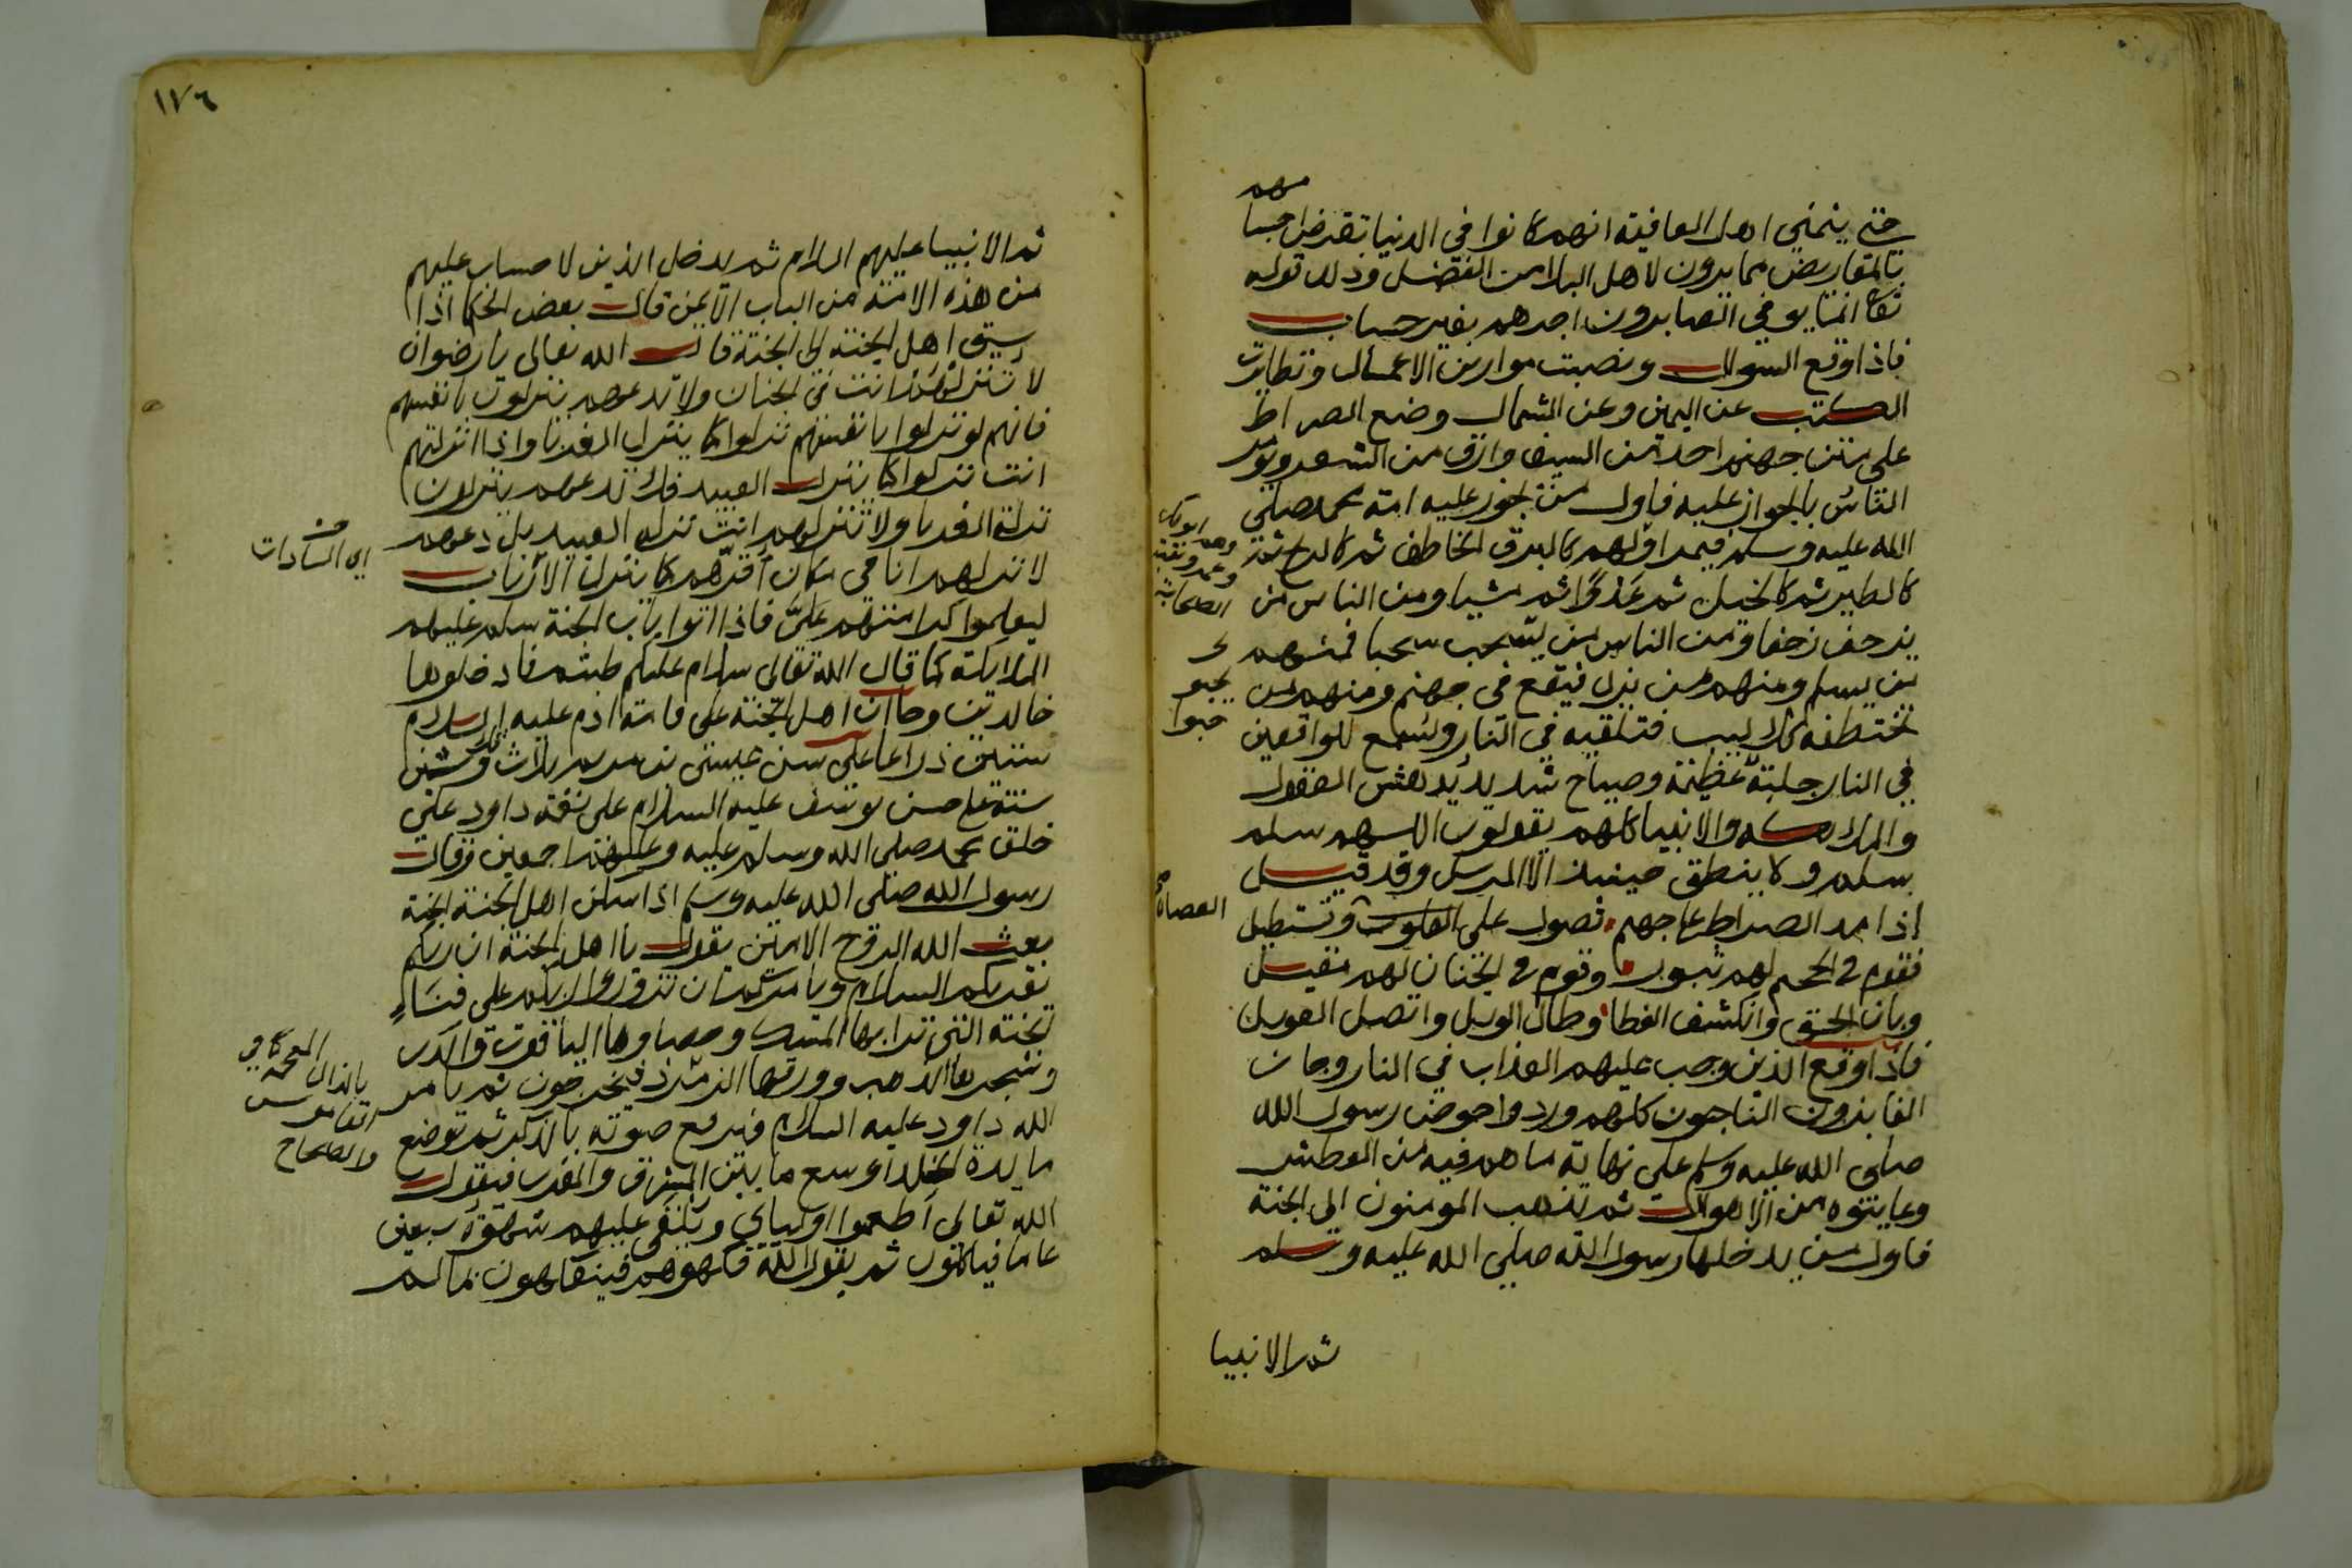 حتى يتمنى اهل العافية انهم كانوا في الدنيا تقرض اجسا
مهم
بالمقاريض مما يرون لاهل البلا من الفضل وذلك قوله
تعا انما يوفى الصابرون اجرهم بغير حساب
فاذا وقع السوال ونصبت موازين الاعمال وتطايرت
الكتب عن اليمين وعن الشمال وضع الصراط
على متن جهنم احد من السيف وارق من الشعر ويومر
الناس بالجواز عليه فاول من يجوز عليه امة محمد صلى
الله عليه وسلم فيمر اولهم كالبرق الخاطف ثم كالريح ثم
كالطير ثم كالخيل ثم عدوا ثم مشيا ومن الناس من
يزحف زحفا ومن الناس من يسحب سحبا فمنهم
من يسلم ومنهم من يزل فيقع في جهنم ومنهم من
تختطفه كلاليب فتلقيه في النار ويسمع للواقعين
في النار جلبة عظيمة وصياح شديد يدهش العقول
والملايكة والانبيا كلهم يقولون اللهم سلم
سلم ولا ينطق حينيذ الا المرسل وقد قيل
اذا مد الصراط على جهنم تصول على وتستطيل
فقوم في الجحيم لهم ثبور وقوم في الجنان لهم مقيل
وبان الحق وانكشف الغطا وطال الويل واتصل العويل
فاذا وقع الذين وجب عليهم العذاب في النار وجاز
الفايزون الناجون كلهم وردوا حوض رسول الله
صلى الله عليه وسلم على نهاية ما هم فيه من العطش
وعاينوه من الاهوال ثم يذهب المومنون الى الجنة
فاول من يدخلها رسول الله صلى الله عليه وسلم
وهم ابوبكر
وعمر وبقية
الصحابة
يحبو
حبوا
العصاة
ثم الانبيا
١٧٦
ثم الانبيا عليهم السلام ثم يدخل الذين لا حساب عليهم
من هذه الامة من الباب الايمن قال بعض الحكما اذا
سيق اهل الجنة الى الجنة قال الله تعالى يا رضوان
لا تنزلهم انت في الجنان ولا تدعهم ينزلون بانفسهم
فانهم لو نزلوا بانفسهم نزلوا كما ينزل الغربا واذا انزلتهم
انت نزلوا كما ينزل العبيد فلا تدعهم ينزلون
نزلة الغربا ولا تنزلهم انت نزلة العبيد بل دعهم
لانزلهم انا في مكان اقرهم كما ينزل الارباب
ليعلموا كرامتهم علي فاذا اتوا باب الجنة سلم عليهم
الملايكة كما قال الله تعالى سلام عليكم طبتم فادخلوها
خالدين وجا ان اهل الجنة على قامة ادم عليه السلام
ستين ذراعا على سن عيسى بن مريم ثلاث وثلاثين
سنة على حسن يوسف عليه السلام على نغمة داود على
خلق محمد صلى الله وسلم عليه وعليهم اجمعين وقال
رسول الله صلى الله عليه وسلم اذا سكن اهل الجنة الجنة
بعث الله الروح الامين يقول يا اهل الجنة ان ربكم
يقريكم السلام ويامركم ان تزوروا ربكم على فناء
الجنة التي ترابها المسك وحصاوها الياقوت والدر
وشجرها الذهب وورقها الزمرد فيخرجون ثم يامر
الله داود عليه السلام فيرفع صوته بالذكر ثم توضع
مايدة الخلد اوسع ما بين المشرق والمغرب فيقول
الله تعالى اطعموا اوليائي ويلقى عليهم شهوة سبعين
عاما فياكلون ثم يقول الله فكهوهم فيتفكهون بما لم
اي السادات
بالذال المعجمة كما في
القاموس
والصحاح